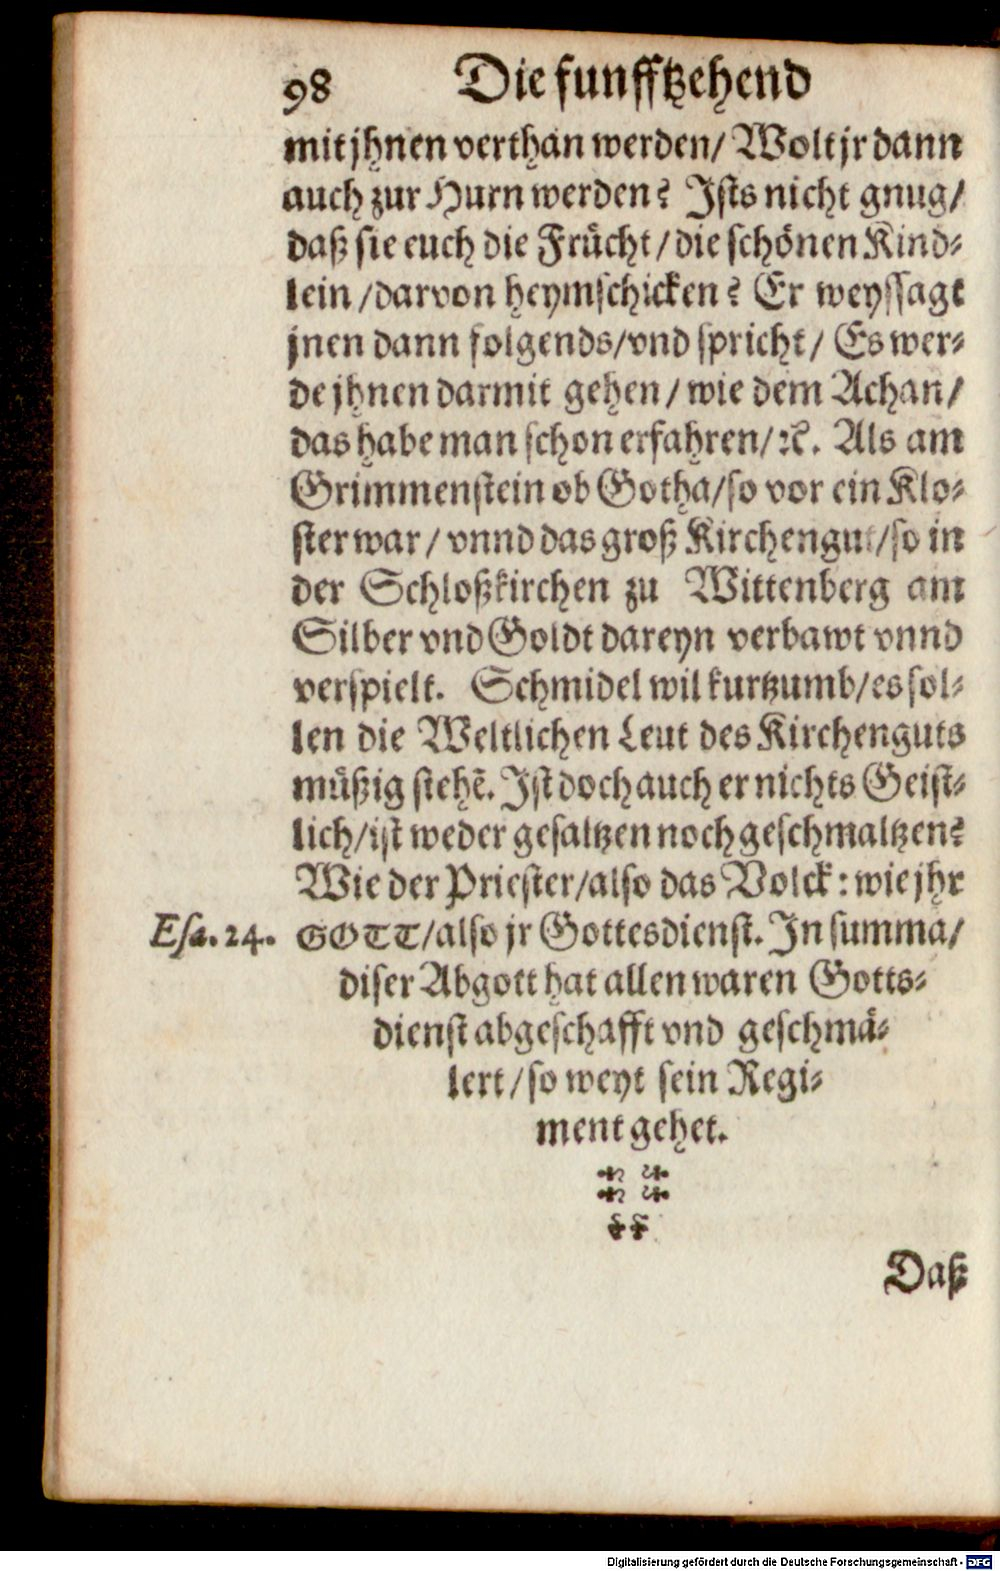 98 Die funfftzehend
mit jhnen verthan werden/ Wolt jr dann
auch zur Hurn werden? Ists nicht gnug/
daß sie euch die Frücht/ die schönen Kind-
lein/ darvon heymschicken? Er weyssagt
jnen dann folgends/ vnd spricht/ Es wer-
de jhnen darmit gehen/ wie dem Achan/
das habe man schon erfahren/ ꝛc. Als am
Grimmenstein ob Gotha/ so vor ein Klo-
ster war/ vnnd das groß Kirchengut/ so in
der Schloßkirchen zu Wittenberg am
Silber vnd Goldt dareyn verbawt vnnd
verspielt. Schmidel wil kurtzumb/ es sol-
len die Weltlichen Leut des Kirchenguts
müßig stehẽ. Ist doch auch er nichts Geist-
lich/ ist weder gesaltzen noch geschmaltzen?
Wie der Priester/ also das Volck: wie jhr
Esa. 24. GOTT/ also jr Gottesdienst. In summa/
diser Abgott hat allen waren Gotts-
dienst abgeschafft vnd geschmä-
lert/ so weyt sein Regi-
ment gehet.
Daß
Digitalisierung gefördert durch die Deutsche Forschungsgemeinschaft - DFG